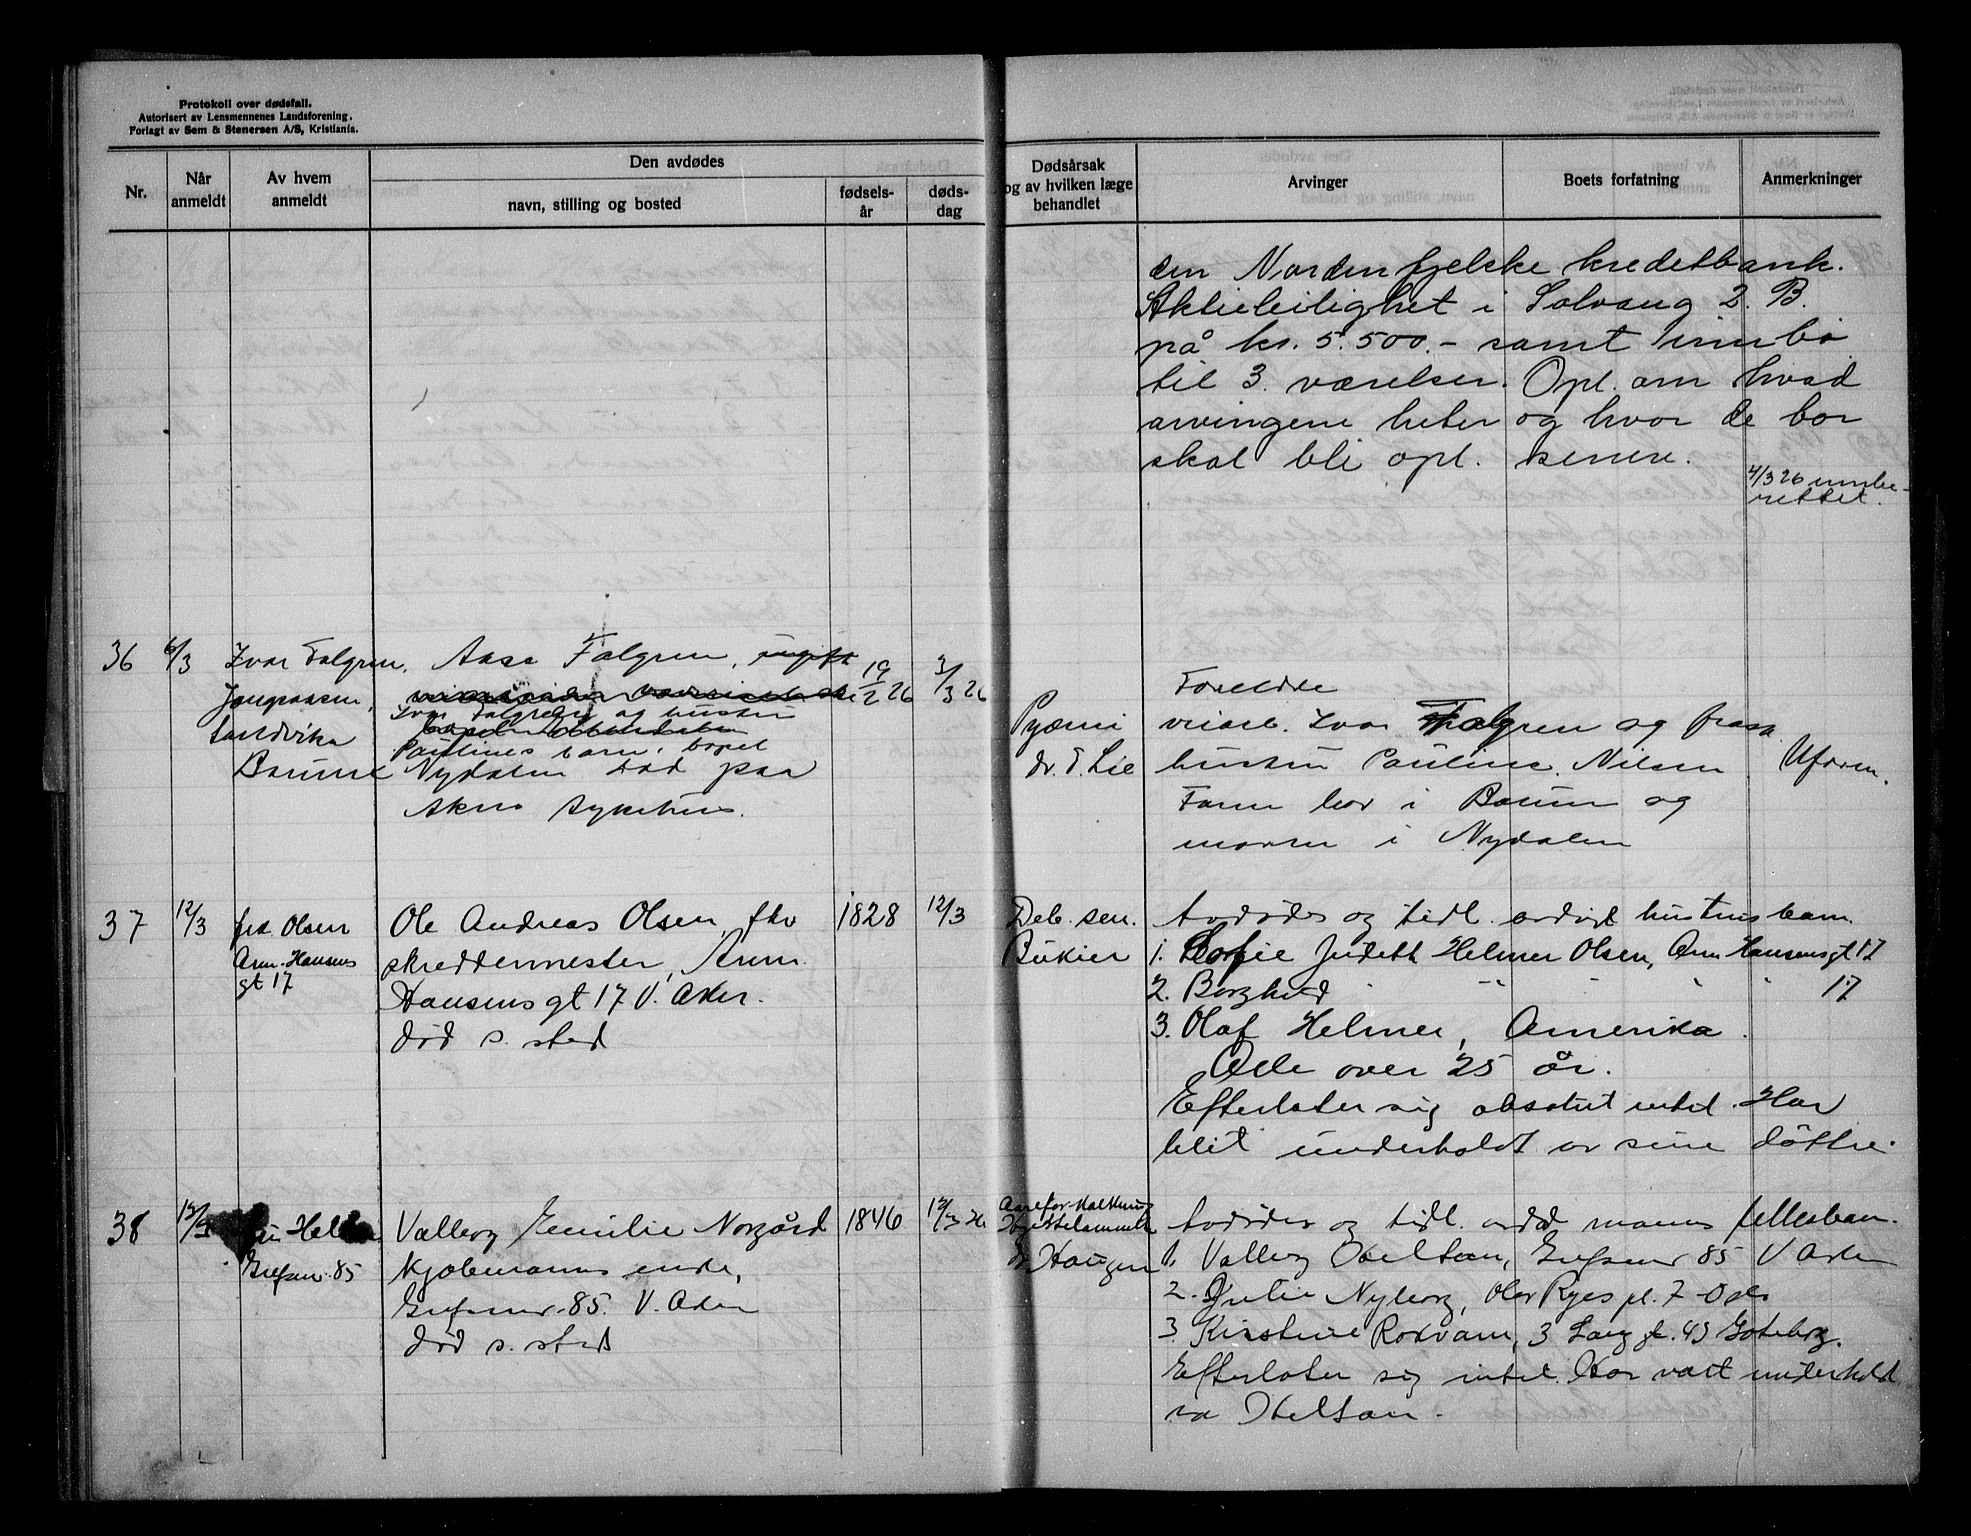 Protokoll over dødsfall.
Autorisert av Lensmennenes Landsforening.
Forlagt av Sem & Stenersen A/S, Kristiania.
Nr.
Når anmeldt
Av hvem anmeldt
Den avdødes
navn, stilling og bosted
fødsels-år
døds-dag
Dødsårsak og av hvilken læge behandlet
Arvinger
Boets forfatning
Anmerkninger
den Nordenfjelske kredetbank.
Aktieleilighet i Solvang 2. B.
på kr. 5.500.- samt innbo
til 3 værelser. Opl. om hvad
arvingene heter og hvor de bor
skal bli opl. senere.
4/3 26 innbe-
rettet.
36
6/3
Ivar Falgren,
Sandvika
Aasa Falgren, ugift
19/2 26
3/3 26
Ivar Falgren og hustru
Paulines barn, bopel
Nydalen død paa
Akers sykehus.
Pyæmi
dr. E. Lie
Foreldre
Ivar Falgren og frask.
hustru Pauline Nilsen
Faren bor i Bærum og
moren i Nydalen
Uformu.
37
12/3
frk. Olsen
Arn. Hansens
gt 17
Ole Andreas Olsen, fhv
skreddermester, Arnm.
Hansens gt 17 V. Aker.
død s. sted
1828
12/3
Deb. sen.
Bükier
Avdødes og tidl. avdøde hustrus barn.
1. Sofie Judett Helmer Olsen, Arn Hansensgt 17
2. Borghild " " " " 17
3. Olaf Helmer, Amerika.
Alle over 25 år.
Efterlater sig absolut intet. Har
blit underholdt av sine døttre.
38
Grefsenv. 85
Valborg Emilie Norgård
kjøbmanns enke,
Grefsenv. 85. V. Aker
død s. sted
1846
dr Haugen
Avdødes og tidl. avdøde manns fellesbarn.
1. Valborg Heltsan, Grefsenv 85 V Aker
2. Julie Nyborg, Olav Ryes pl. 7 Oslo
3. Kirstine Roxvam, 3 Lang gt. 43 Gøteborg.
Efterlater sig intet. Har vært underholdt
av Heltsan.